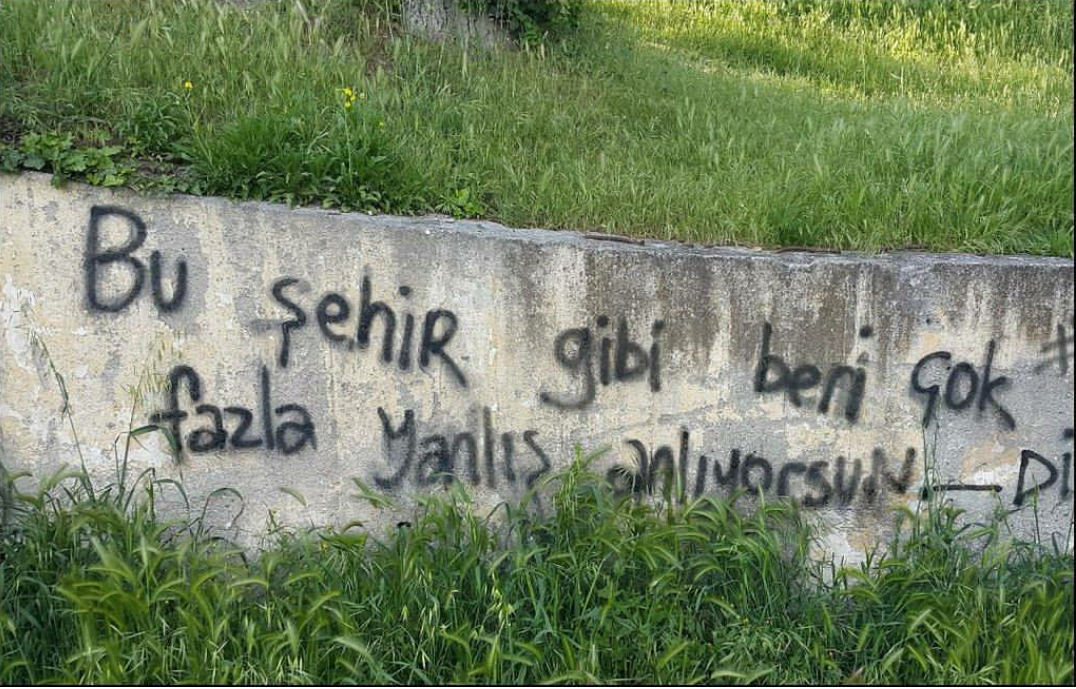 Bu şehir gibi beni çok
fazla Yanlış anlıyorsuN —